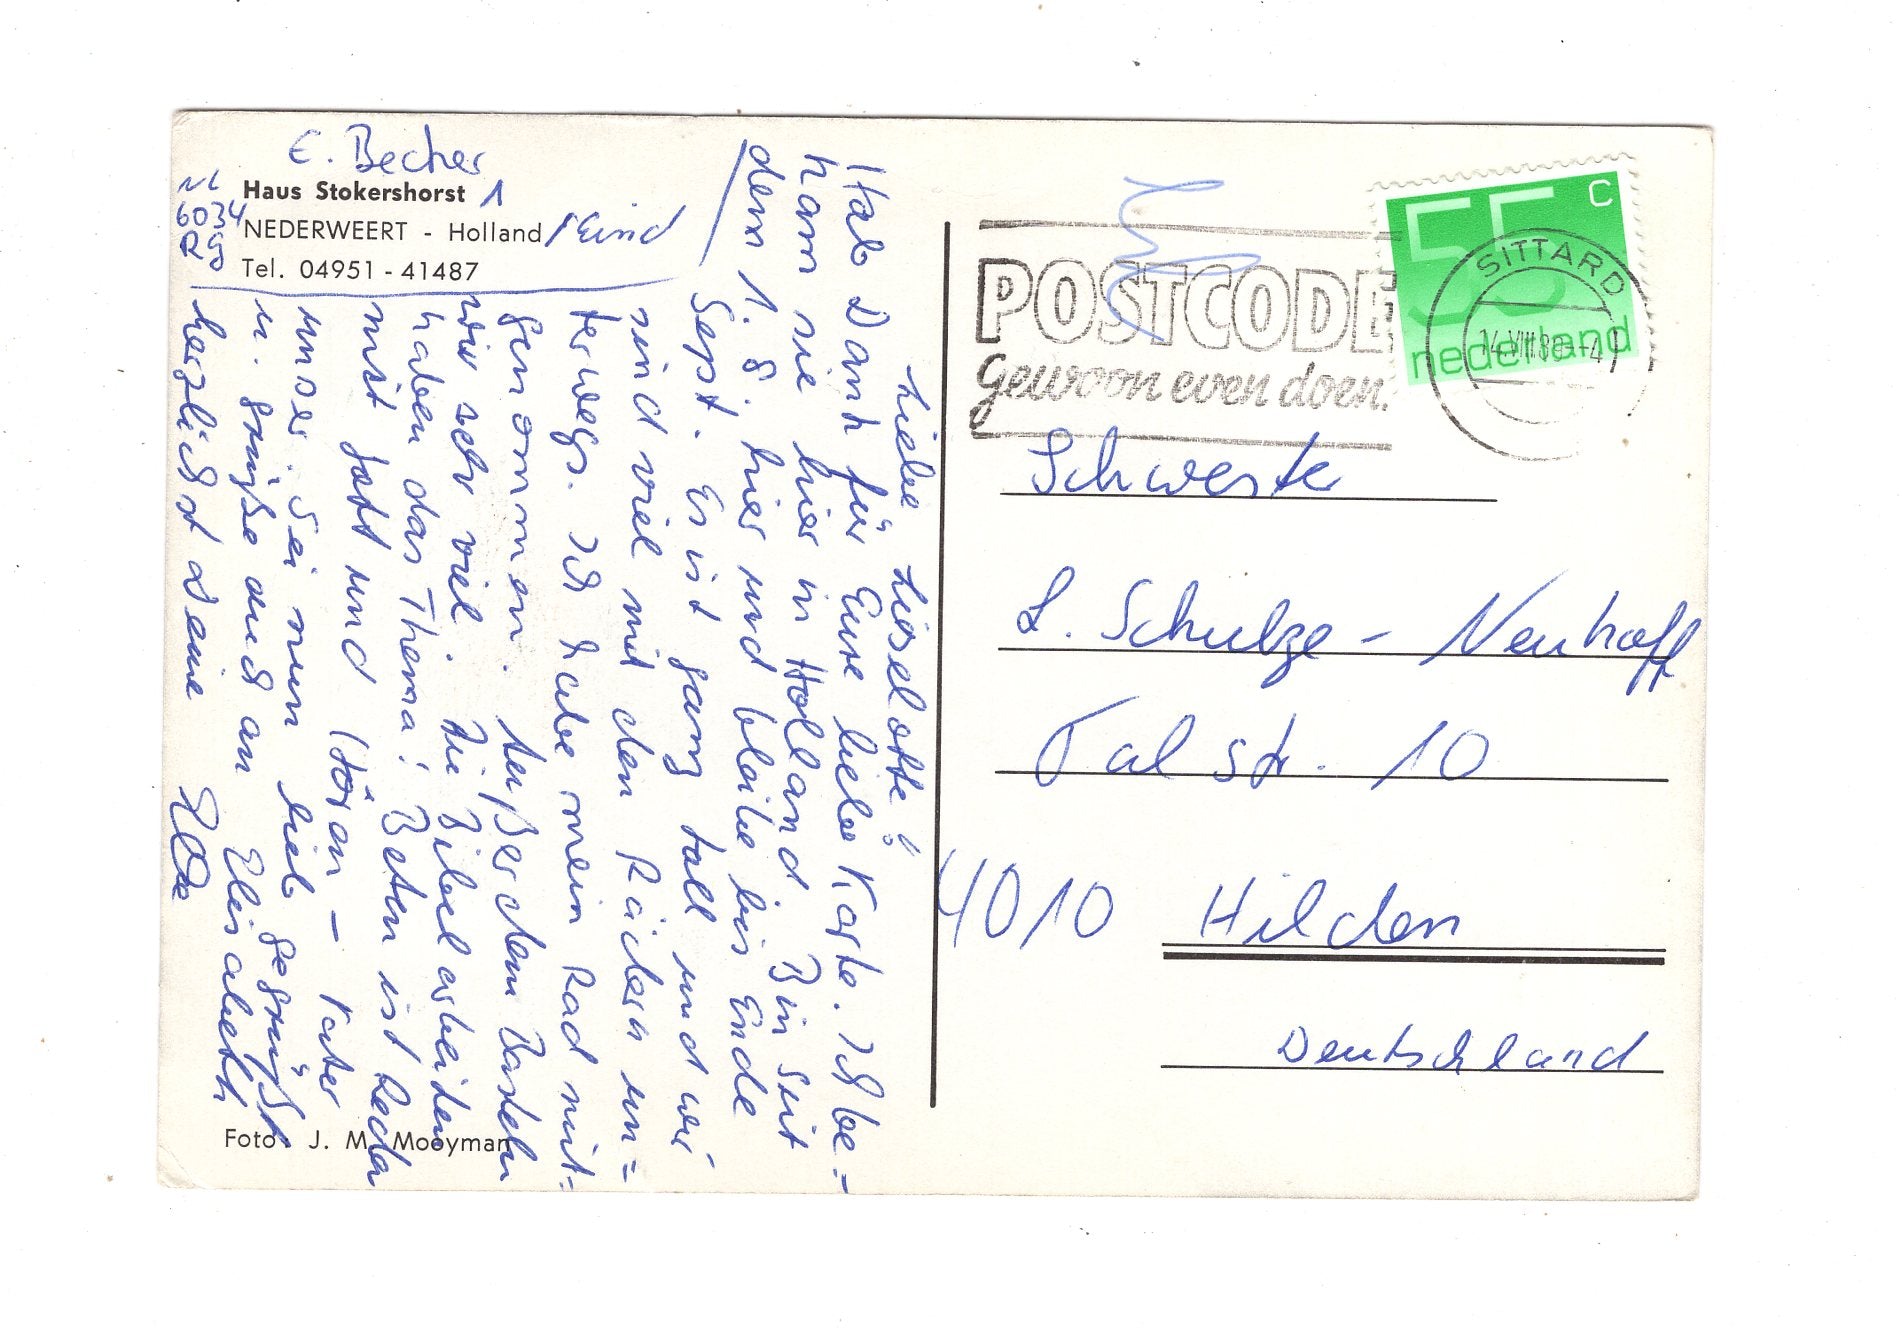 E. Becher
Haus Stokershorst 1
NL
6034
NEDERWEERT - Holland / Eind
Tel. 04951 - 41487
Liebe Liselotte!
Hab Dank für Eure liebe Karte. Ich be-
kam sie hier in Holland. Bin seit
dem 1. 8. hier und bleibe bis Ende
Sept. Es ist ganz toll und wir
sind viel mit den Rädern un=
terwegs. Ich habe mein Rad mit=
genommen. Außerdem basteln
wir sehr viel. In Bibelarbeiten
haben das Thema: Beten ist Reden
mit Gott und Hören - Vater
unser. Sei nun lieb gegrüßt
u. grüße auch an Elisabeth
herzlichst Deine
Foto: J. M. Mooyman
POSTCODE
Gewoon even doen.
55 c
nederland
SITTARD
14.VIII.8
Schwester
L. Schulze - Neuhoff
Talstr. 10
4010 Hilden
Deutschland